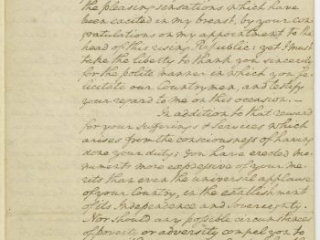 the pleasing sensations which have
been excited in my breast, by your con-
gratulations on my appointment to the
head of this rising Republic; yet I must
take the liberty to thank you sincerely
for the polite manner in which you fe-
licitate our Countrymen, and testify
your regard to me on this occasion.—
In addition to that reward
for your sufferings & services which
arises from the consciousness of having
done your duty; you have erected mo-
numents more expressive of your me-
rits than even the universal applause
of your Country, in the establishment
of its Independence and Sovereignty.
Nor should any possible circumstances
of poverty or adversity compel you to